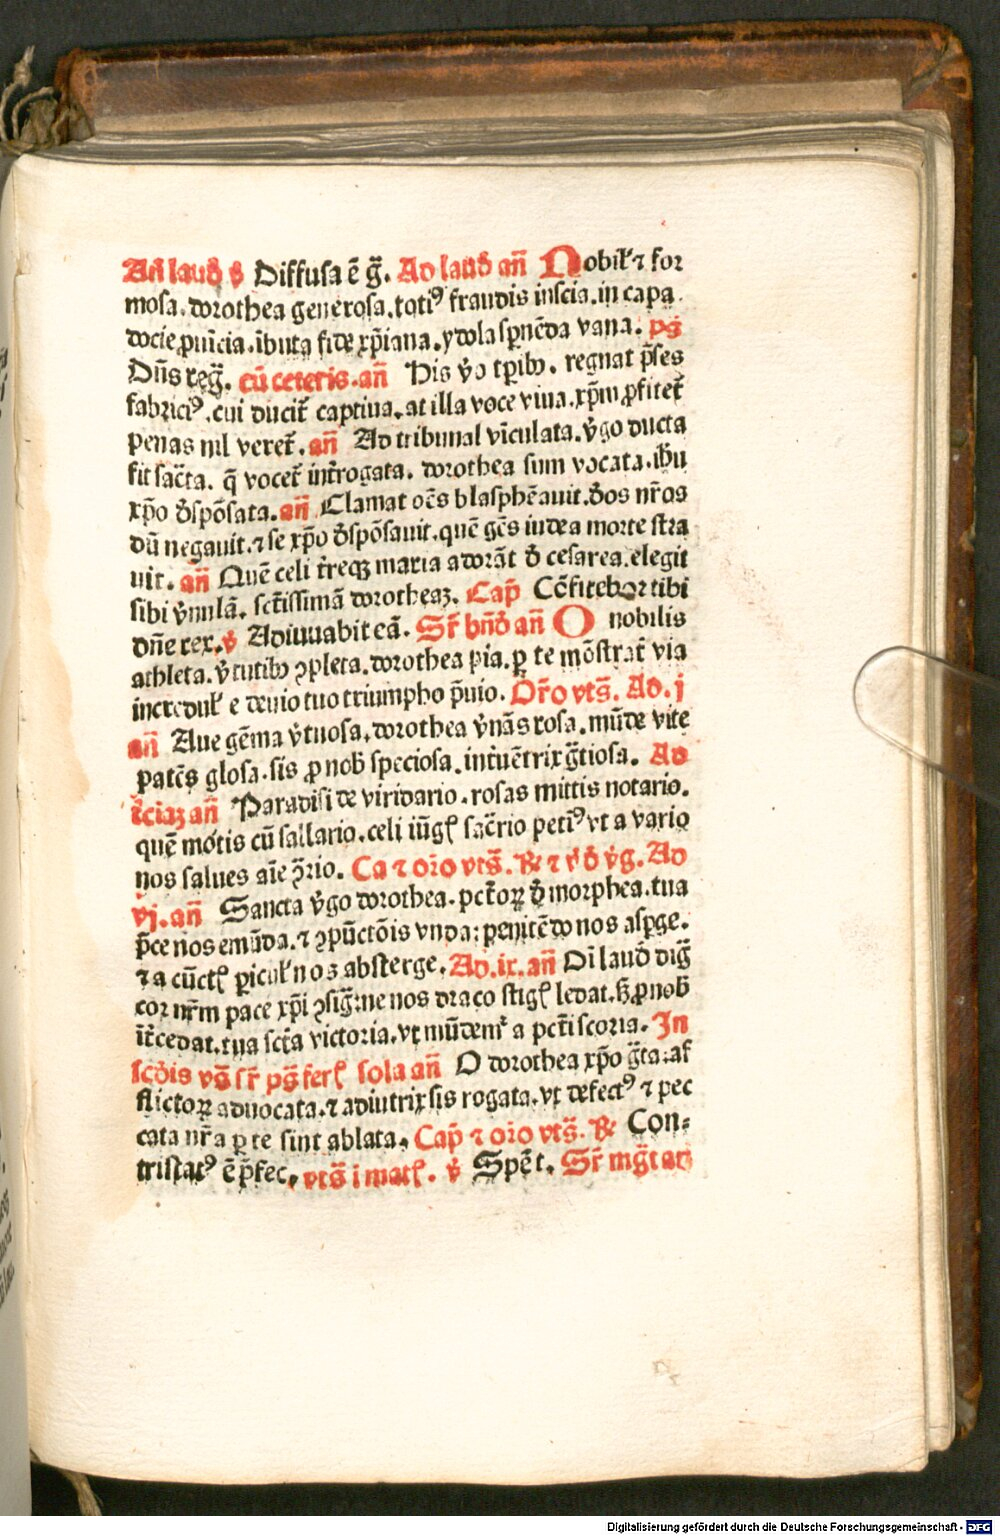 Añ laud̄ ꝟ Diffusa ē g̃. Ad laud̄ añ Nobil' ⁊ for
mosa. dorothea generosa. toti⁹ fraudis inscia. in capa
docie ꝓuīcia. ībuta fide xp̄iana. ydola spnēda vana. ps̄
Dn̄s reg̃. cū ceteris. añ His v̊o tꝑib⁹. regnat p̄ses
fabrici⁹. cui ducit̄ captiua. at illa voce viua. xp̄m ꝓfitet̄
penas nil veret̄. añ Ad tribunal vīculata. v̊go ducta
fit sac̄ta. q̄ vocet̄ int̄rogata. dorothea sum vocata. ihū
xp̄o d̄spōsata. añ Clamat oēs blasphēauit. d̄os nr̄os
dū negauit. ⁊ se xp̄o d̄spōsauit. quē gēs iudea morte stra
uit. añ Quē celi t̄reqꝫ maria adorāt d̄ cesarea. elegit
sibi v̊nulā. sc̄tissimā dorotheaꝫ. Cap̄ Cōfitebor tibi
dn̄e rex. ꝟ Adiuuabit eā. Sr̄ bn̄d̄ añ O nobilis
athleta. v̊tutib⁹ ꝯpleta. dorothea pia. ꝑ te mōstrat̄ via
incredul' e deuio tuo triumpho p̄uio. Or̄o vts̄. Ad. j
añ Aue gēma v̊tuosa. dorothea v̊nās rosa. mūde vite
patēs glosa. sis ꝓ nob̄ speciosa. int̄uētrix gt̄iosa. Ad
t̄ciaꝫ añ Paradisi de viridario. rosas mittis notario.
quē mōtis cū sallario. celi iūgꝭ sac̄rio peti⁹ vt a vario
nos salues aīe ꝯ̄rio. Ca ⁊ or̄o vts̄. ℟ ⁊ ꝟ d̄ v̊g. Ad
vj. añ Sancta v̊go dorothea. pct̄oꝝ d̄ morphea. tua
p̄ce nos emūda. ⁊ ꝯpūctōis vnda: penitēdo nos asꝑge.
⁊ a cūctꝭ ꝑicul' nos absterge. Ad. ix. añ Di laud̄ dig̃
cor nr̄m pace xp̄i ꝯsig̃. ne nos draco stigꝭ ledat. sꝫ ꝓ nob̄
īt̄cedat. tua sc̄ta victoria. vt mūdem̄ a pct̄i scoria. In
sc̄d̄is vs̄ sr̄ ps̄ ferꝭ sola añ O dorothea xp̄o gt̄a: af
flictoꝝ aduocata. ⁊ adiutrix sis rogata. vt defect⁹ ⁊ pec
cata nr̄a ꝑ te sint ablata. Cap̄ ⁊ or̄o vts̄. ℟ Con⸗
tristat⁹ ē p̄fec. vts̄ i matꝭ. ꝟ Spēt. Sr̄ mg̃t añ
Digitalisierung gefördert durch die Deutsche Forschungsgemeinschaft - DFG